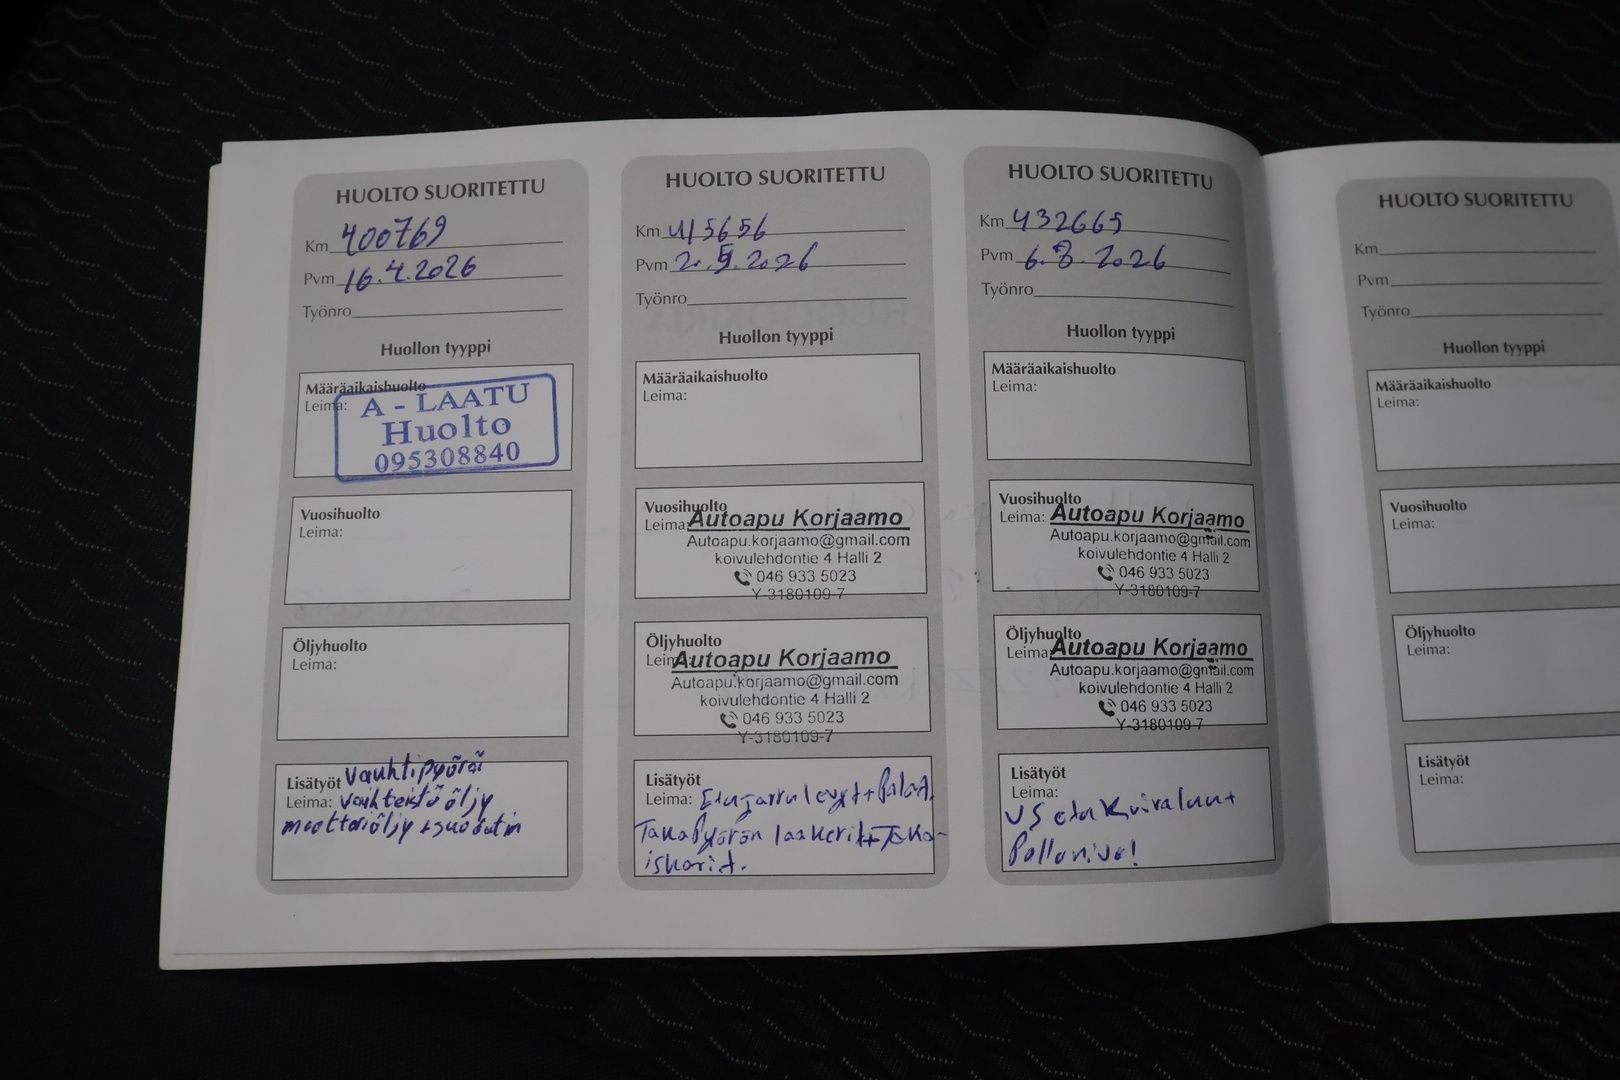 HUOLTO SUORITETTU
Km 400769
Pvm 16.4.2026
Työnro
Huollon tyyppi
Määräaikaishuolto
Leima:
A - LAATU
Huolto
095308840
Vuosihuolto
Leima:
Öljyhuolto
Leima:
Lisätyöt vauhtipyörä
Leima: vaihteistö öljy
moottoriöljy + suodatin
HUOLTO SUORITETTU
Km 415656
Pvm 2.5.2026
Työnro
Huollon tyyppi
Määräaikaishuolto
Leima:
Vuosihuolto
Leima: Autoapu Korjaamo
Autoapu.korjaamo@gmail.com
koivulehdontie 4 Halli 2
046 933 5023
Y-3180109-7
Öljyhuolto
Leima: Autoapu Korjaamo
Autoapu.korjaamo@gmail.com
koivulehdontie 4 Halli 2
046 933 5023
Y-3180109-7
Lisätyöt
Leima: Etujarrulevyt + Palat.
Takapyörän laakerit + Taka-
iskarit.
HUOLTO SUORITETTU
Km 432665
Pvm 6.8.2026
Työnro
Huollon tyyppi
Määräaikaishuolto
Leima:
Vuosihuolto
Leima: Autoapu Korjaamo
Autoapu.korjaamo@gmail.com
koivulehdontie 4 Halli 2
046 933 5023
Y-3180109-7
Öljyhuolto
Leima: Autoapu Korjaamo
Autoapu.korjaamo@gmail.com
koivulehdontie 4 Halli 2
046 933 5023
Y-3180109-7
Lisätyöt
Leima:
VS etu +
Pallonivel!
HUOLTO SUORITETTU
Km
Pvm
Työnro
Huollon tyyppi
Määräaikaishuolto
Leima:
Vuosihuolto
Leima:
Öljyhuolto
Leima:
Lisätyöt
Leima: